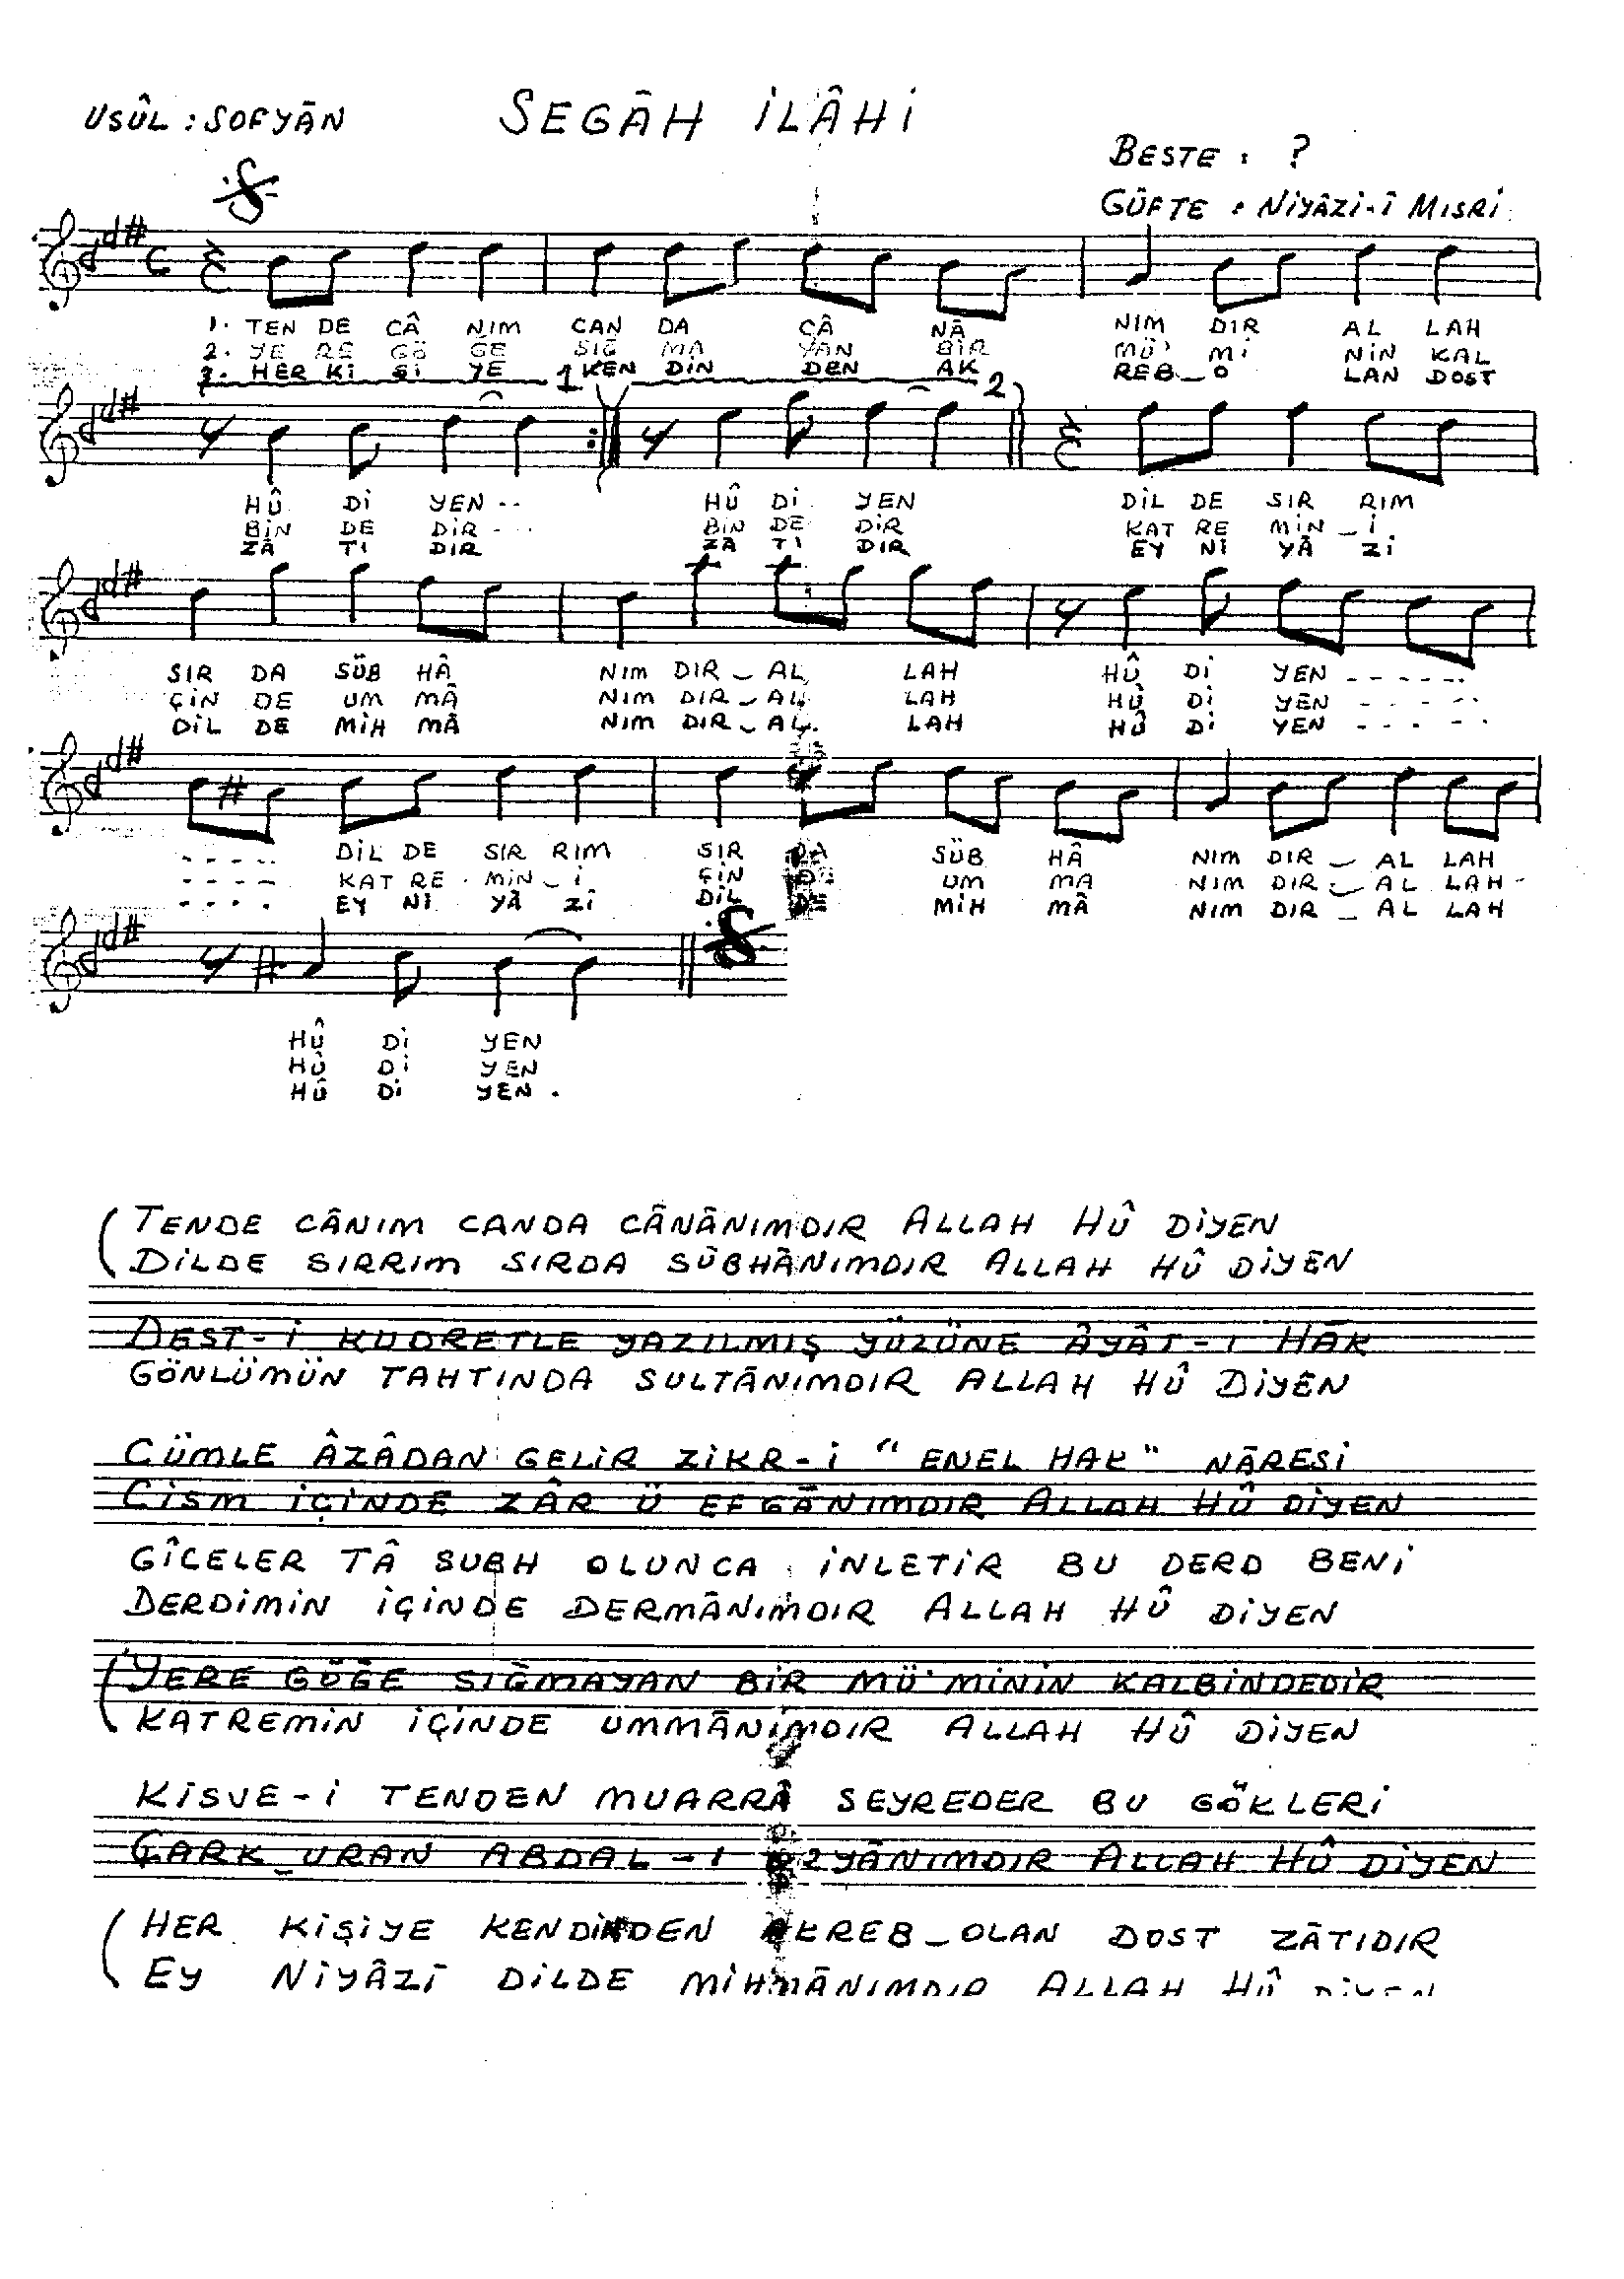 USÛL : SOFYÂN
SEGÂH İLÂHİ
BESTE : ?
GÜFTE : NİYÂZİ-Î MISRİ
1. TEN DE CÂ NIM CAN DA CÂ NÂ NIM DIR AL LAH
2. YE RE GÖ ĞE SIĞ MA YAN BİR MÜ' Mİ NİN KAL
3. HER Kİ Şİ YE KEN DİN DEN AK REB_O LAN DOST
1 2
HÛ Dİ YEN-- HÛ Dİ YEN DİL DE SIR RIM
BİN DE DİR--- BİN DE DİR KAT RE MİN_İ
ZÂ TI DIR ZÂ TI DIR EY Nİ YÂ Zİ
SIR DA SÜB HÂ NIM DIR_AL LAH HÛ Dİ YEN ------
ÇİN DE UM MÂ NIM DIR_AL LAH HÛ Dİ YEN -----
DİL DE MİH MÂ NIM DIR_AL LAH HÛ Dİ YEN -----
----- DİL DE SIR RIM SIR DA SÜB HÂ NIM DIR_AL LAH
---- KAT RE MİN_İ ÇİN DE UM MA NIM DIR_AL LAH-
---- EY Nİ YÂ Zİ DİL DE MİH MÂ NIM DIR_AL LAH
HÛ Dİ YEN
HÛ Dİ YEN
HÛ Dİ YEN.
(TENDE CÂNIM CANDA CÂNÂNIMDIR ALLAH HÛ DİYEN
DİLDE SIRRIM SIRDA SÜBHÂNIMDIR ALLAH HÛ DİYEN
DEST-İ KUDRETLE YAZILMIŞ YÜZÜNE ÂYÂT-I HAK
GÖNLÜMÜN TAHTINDA SULTÂNIMDIR ALLAH HÛ DİYEN
CÜMLE ÂZÂDAN GELİR ZİKR-İ "ENEL HAK" NÂRESİ
CİSM İÇİNDE ZÂR Ü EFGÂNIMDIR ALLAH HÛ DİYEN
GÎCELER TÂ SUBH OLUNCA İNLETİR BU DERD BENİ
DERDİMİN İÇİNDE DERMÂNIMDIR ALLAH HÛ DİYEN
(YERE GÖĞE SIĞMAYAN BİR MÜ'MİNİN KALBİNDEDİR
KATREMİN İÇİNDE UMMÂNIMDIR ALLAH HÛ DİYEN
KİSVE-İ TENDEN MUARRÂ SEYREDER BU GÖKLERİ
ÇARK_URAN ABDAL-I ÜZYÂNIMDIR ALLAH HÛ DİYEN
(HER KİŞİYE KENDİNDEN AKREB_OLAN DOST ZÂTIDIR
EY NİYÂZÎ DİLDE MİHMÂNIMDIR ALLAH HÛ DİYEN